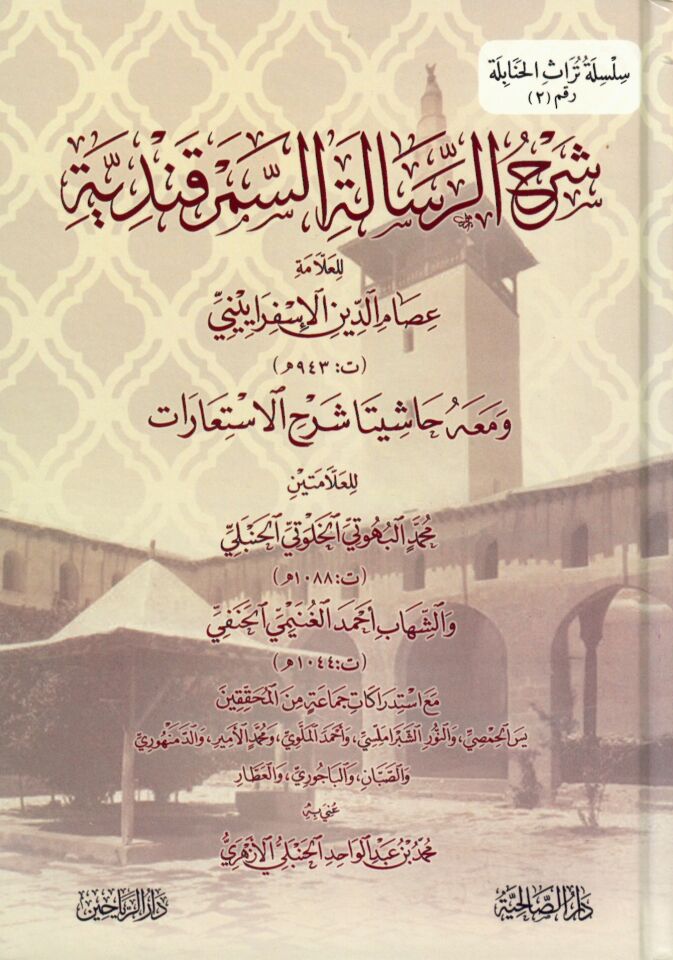 سِلْسِلَةُ تُرَاثِ الحَنَابِلَة
رقم (٢)
شَرْحُ الرِّسَالَةِ السَّمَرْقَنْدِيَّةِ
لِلعَلَّامَةِ
عِصَامِ الدِّينِ الإِسْفَرَايِينِيِّ
(ت: ٩٤٣هـ)
وَمَعَهُ حَاشِيَتَا شَرْحِ الاسْتِعَارَاتِ
لِلعَلَّامَتَيْنِ
مُحَمَّدٍ البُهُوتِيِّ الخَلْوَتِيِّ الحَنْبَلِيِّ
(ت: ١٠٨٨هـ)
وَالشِّهَابِ أَحْمَدَ الغُنَيْمِيِّ الحَنَفِيِّ
(ت: ١٠٤٤هـ)
مَعَ اسْتِدْرَاكَاتِ جَمَاعَةٍ مِنَ المُحَقِّقِينَ
يس الحِمْصِيِّ، وَالنُّورِ الشَّبْرَامَلِّسِيِّ، وَأَحْمَدَ المَلَّوِيِّ، وَمُحَمَّدٍ الأَمِيرِ، وَالدَّمَنْهُورِيِّ
وَالصَّبَّانِ، وَالبَاجُورِيِّ، وَالعَطَّارِ
عُنِيَ بِهِ
مُحَمَّدُ بْنُ عَبْدِ الوَاحِدِ الحَنْبَلِيُّ الأَزْهَرِيُّ
دَارُ الصَّالِحِيَّةِ
دَارُ الرَّيَاحِينِ